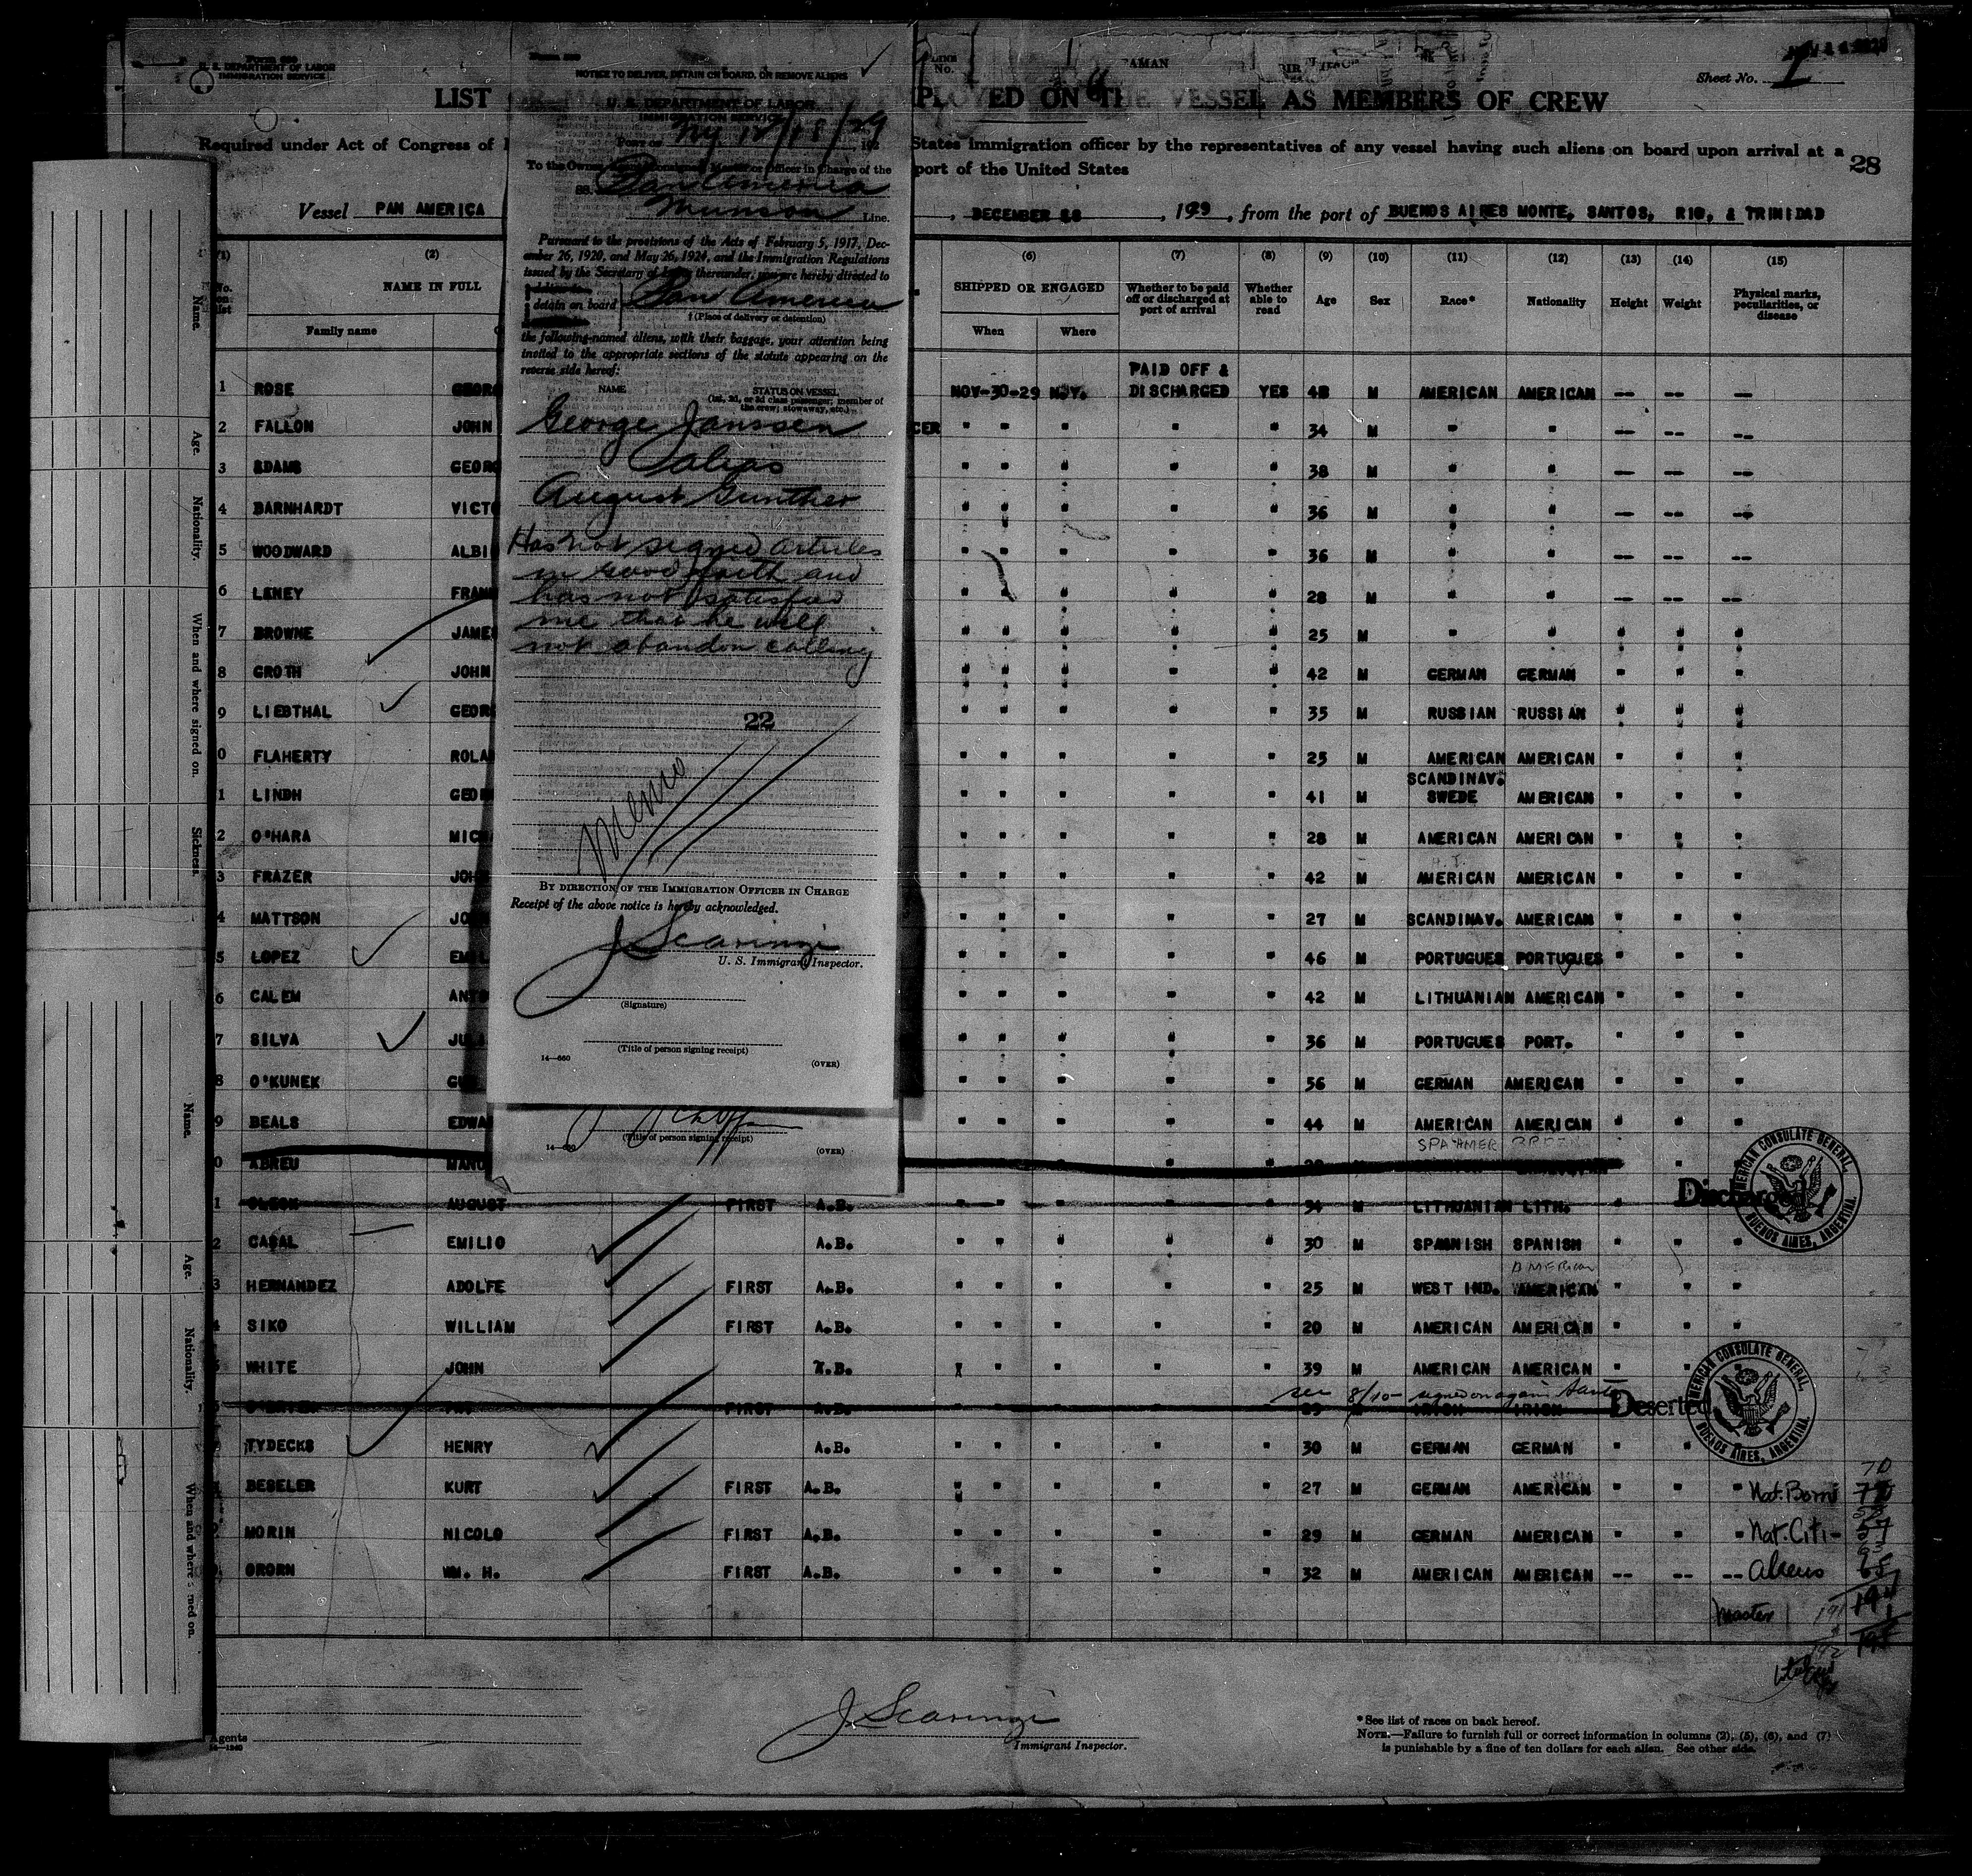 Form 680
U. S. DEPARTMENT OF LABOR
IMMIGRATION SERVICE
Sheet No. 1
LIST
PLOYED ON THE VESSEL AS MEMBERS OF CREW
Required under Act of Congress of
States immigration officer by the representatives of any vessel having such aliens on board upon arrival at a
port of the United States
28
Vessel PAN AMERICA
, DECEMBER 28, 1929, from the port of BUENOS AIRES MONTE, SANTOS, RIO, & TRINIDAD
NOTICE TO DELIVER, DETAIN ON BOARD, OR REMOVE ALIENS
U. S. DEPARTMENT OF LABOR
IMMIGRATION SERVICE
Port of NY 12/18/29
To the Owner, Agent, Consignee, Master or Officer in Charge of the
SS. Pan America
Munson Line.
Pursuant to the provisions of the Acts of February 5, 1917, Dec-
ember 26, 1920, and May 26, 1924, and the Immigration Regulations
issued by the Secretary of Labor thereunder, you are hereby directed to
detain on board Pan America
† (Place of delivery or detention)
the following-named aliens, with their baggage, your attention being
invited to the appropriate sections of the statute appearing on the
reverse side hereof:
NAME STATUS ON VESSEL
(1st, 2d, or 3d class passenger; member of
the crew; stowaway, etc.)
George Janssen
alias
August Gunther
Has not signed articles
in good faith and
has not satisfied
me that he will
not abandon calling
22
Memo
BY DIRECTION OF THE IMMIGRATION OFFICER IN CHARGE
Receipt of the above notice is hereby acknowledged.
J Scaringi
U. S. Immigrant Inspector.
(Signature)
(Title of person signing receipt)
14—660 (OVER)
(Title of person signing receipt)
(OVER)
(1) (2) (6) (7) (8) (9) (10) (11) (12) (13) (14) (15)
No. on list NAME IN FULL SHIPPED OR ENGAGED Whether to be paid off or discharged at port of arrival Whether able to read Age Sex Race* Nationality Height Weight Physical marks, peculiarities, or disease
Family name When Where
1 ROSE GEORG NOV-30-29 N.Y. PAID OFF & DISCHARGED YES 48 M AMERICAN AMERICAN -- -- --
2 FALLON JOHN CER " " " " 34 M " " -- -- --
3 ADAMS GEORG " " " " 38 M " " -- -- --
4 BARNHARDT VICTO " " " " 36 M " " -- -- --
5 WOODWARD ALBI " " " " 36 M " " -- -- --
6 LENEY FRAN " " " " 28 M " " -- -- --
7 BROWNE JAME " " " " 25 M " " " " "
8 GROTH JOHN " " " " 42 M GERMAN GERMAN " " "
9 LIEBTHAL GEOR " " " " 35 M RUSSIAN RUSSIAN " " "
0 FLAHERTY ROLA " " " " 25 M AMERICAN AMERICAN " " "
1 LINDH GEO " " " " 41 M SCANDINAV. SWEDE AMERICAN " " "
2 O'HARA MICH " " " " 28 M AMERICAN AMERICAN " " "
3 FRAZER JOH " " " " 42 M AMERICAN AMERICAN " " "
4 MATTSON JO " " " " 27 M SCANDINAV. AMERICAN " " "
5 LOPEZ EM " " " " 46 M PORTUGUES PORTUGUES " " "
6 CALEM ANT " " " " 42 M LITHUANIAN AMERICAN " " "
7 SILVA JUL " " " " 36 M PORTUGUES PORT. " " "
8 O'KUNEK " " " " 56 M GERMAN AMERICAN " " "
9 BEALS EDWA " " " " 44 M AMERICAN AMERICAN " " "
SPA AMER
0 ABREU MANU
1 AUGUST FIRST A.B. " " " " 34 M LITHUANIAN LITH. " Discharged
AMERICAN CONSULATE GENERAL, BUENOS AIRES, ARGENTINA.
2 CASAL EMILIO A.B. " " " " 30 M SPANISH SPANISH " " "
American
3 HERNANDEZ ADOLFE FIRST A.B. " " " " 25 M WEST IND. AMERICAN " " "
4 SIKO WILLIAM FIRST A.B. " " " " 20 M AMERICAN AMERICAN " " "
WHITE JOHN A.B. " " " " 39 M AMERICAN AMERICAN " " "
see 8/10- signed on again
O'BRIEN FIRST A.B. IRISH IRISH Deserted
AMERICAN CONSULATE GENERAL, BUENOS AIRES, ARGENTINA.
TYDECKS HENRY A.B. " " " " 30 M GERMAN GERMAN " " "
BESELER KURT FIRST A.B. " " " " 27 M GERMAN AMERICAN " " " Nat. Born
MORIN NICOLO FIRST A.B. " " " " 29 M GERMAN AMERICAN " " " Nat. Citi-
ORORN WM. H. FIRST A.B. " " " " 32 M AMERICAN AMERICAN -- -- -- Aliens
Master
J Scaringi
Immigrant Inspector.
Agents
*See list of races on back hereof.
NOTE.—Failure to furnish full or correct information in columns (2), (5), (6), and (7)
is punishable by a fine of ten dollars for each alien. See other side.
Name.
Age.
Nationality.
When and where signed on.
Sickness.
Name.
Age.
Nationality.